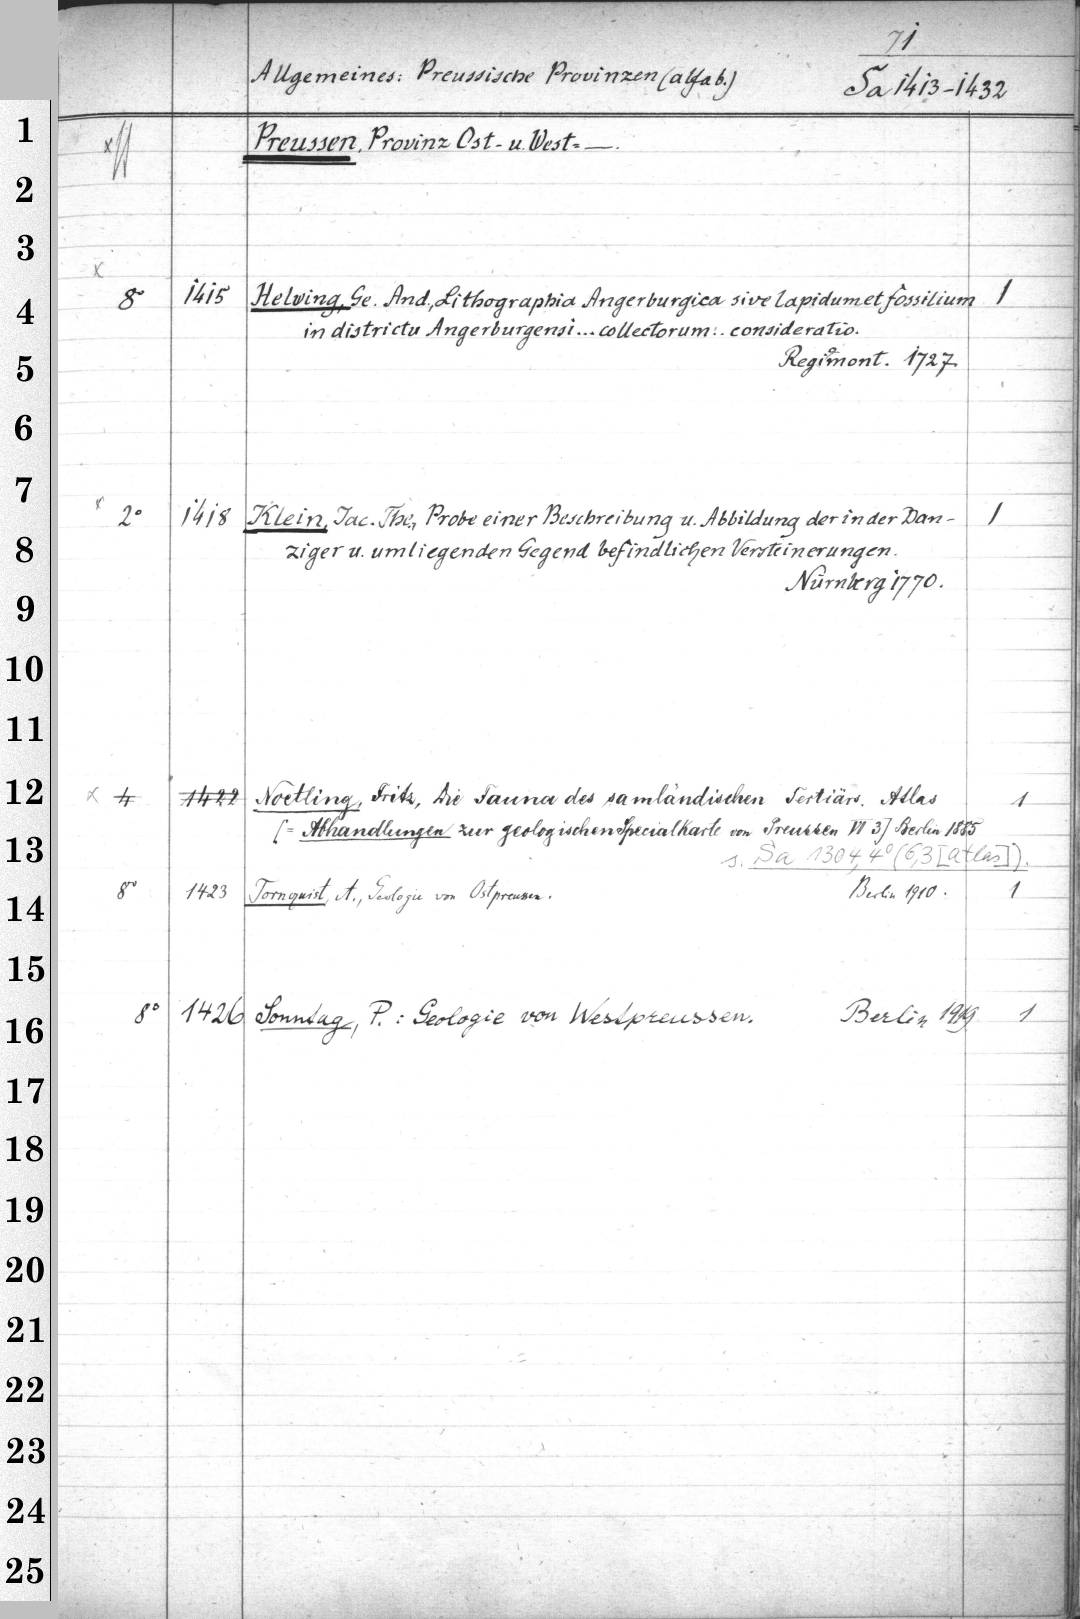 71
Allgemeines: Preussische Provinzen (alfab.)
Sa 1413-1432
1
x
Preussen, Provinz Ost- u. West= —.
2
3
x
4
8° 1415 Helwing, Ge. And., Lithographia Angerburgica sive lapidum et fossilium 1
in districtu Angerburgensi... collectorum... consideratio.
Regiomont. 1727.
5
6
7
x 2° 1418 Klein, Jac. The., Probe einer Beschreibung u. Abbildung der in der Dan- 1
8
ziger u. umliegenden Gegend befindlichen Versteinerungen.
9
Nürnberg 1770.
10
11
12
x 4 1422 Noetling, Fritz, Die Fauna des samländischen Tertiärs. Atlas 1
[= Abhandlungen zur geologischen Specialkarte von Preussen VI 3] Berlin 1885
13
s. Sa 1304, 4° (6,3 [Atlas]).
14
8° 1423 Tornquist, A., Geologie von Ostpreussen. Berlin 1910. 1
15
16
8° 1426 Sonntag, P.: Geologie von Westpreussen. Berlin 1919 1
17
18
19
20
21
22
23
24
25